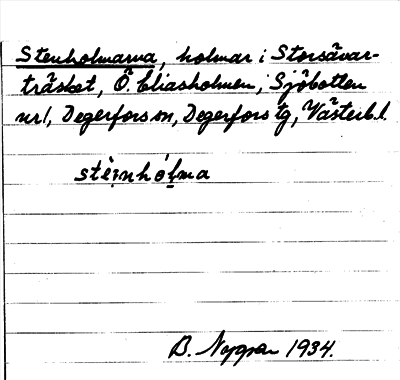 Stenholmarna, holmar i Storsävar-
träsket, Ö. Eliasholmen, Sjöbotten
nr 1, Degerfors sn, Degerfors tg, Västerb. l.
stèi̯nhólma
B. Nygren 1934.